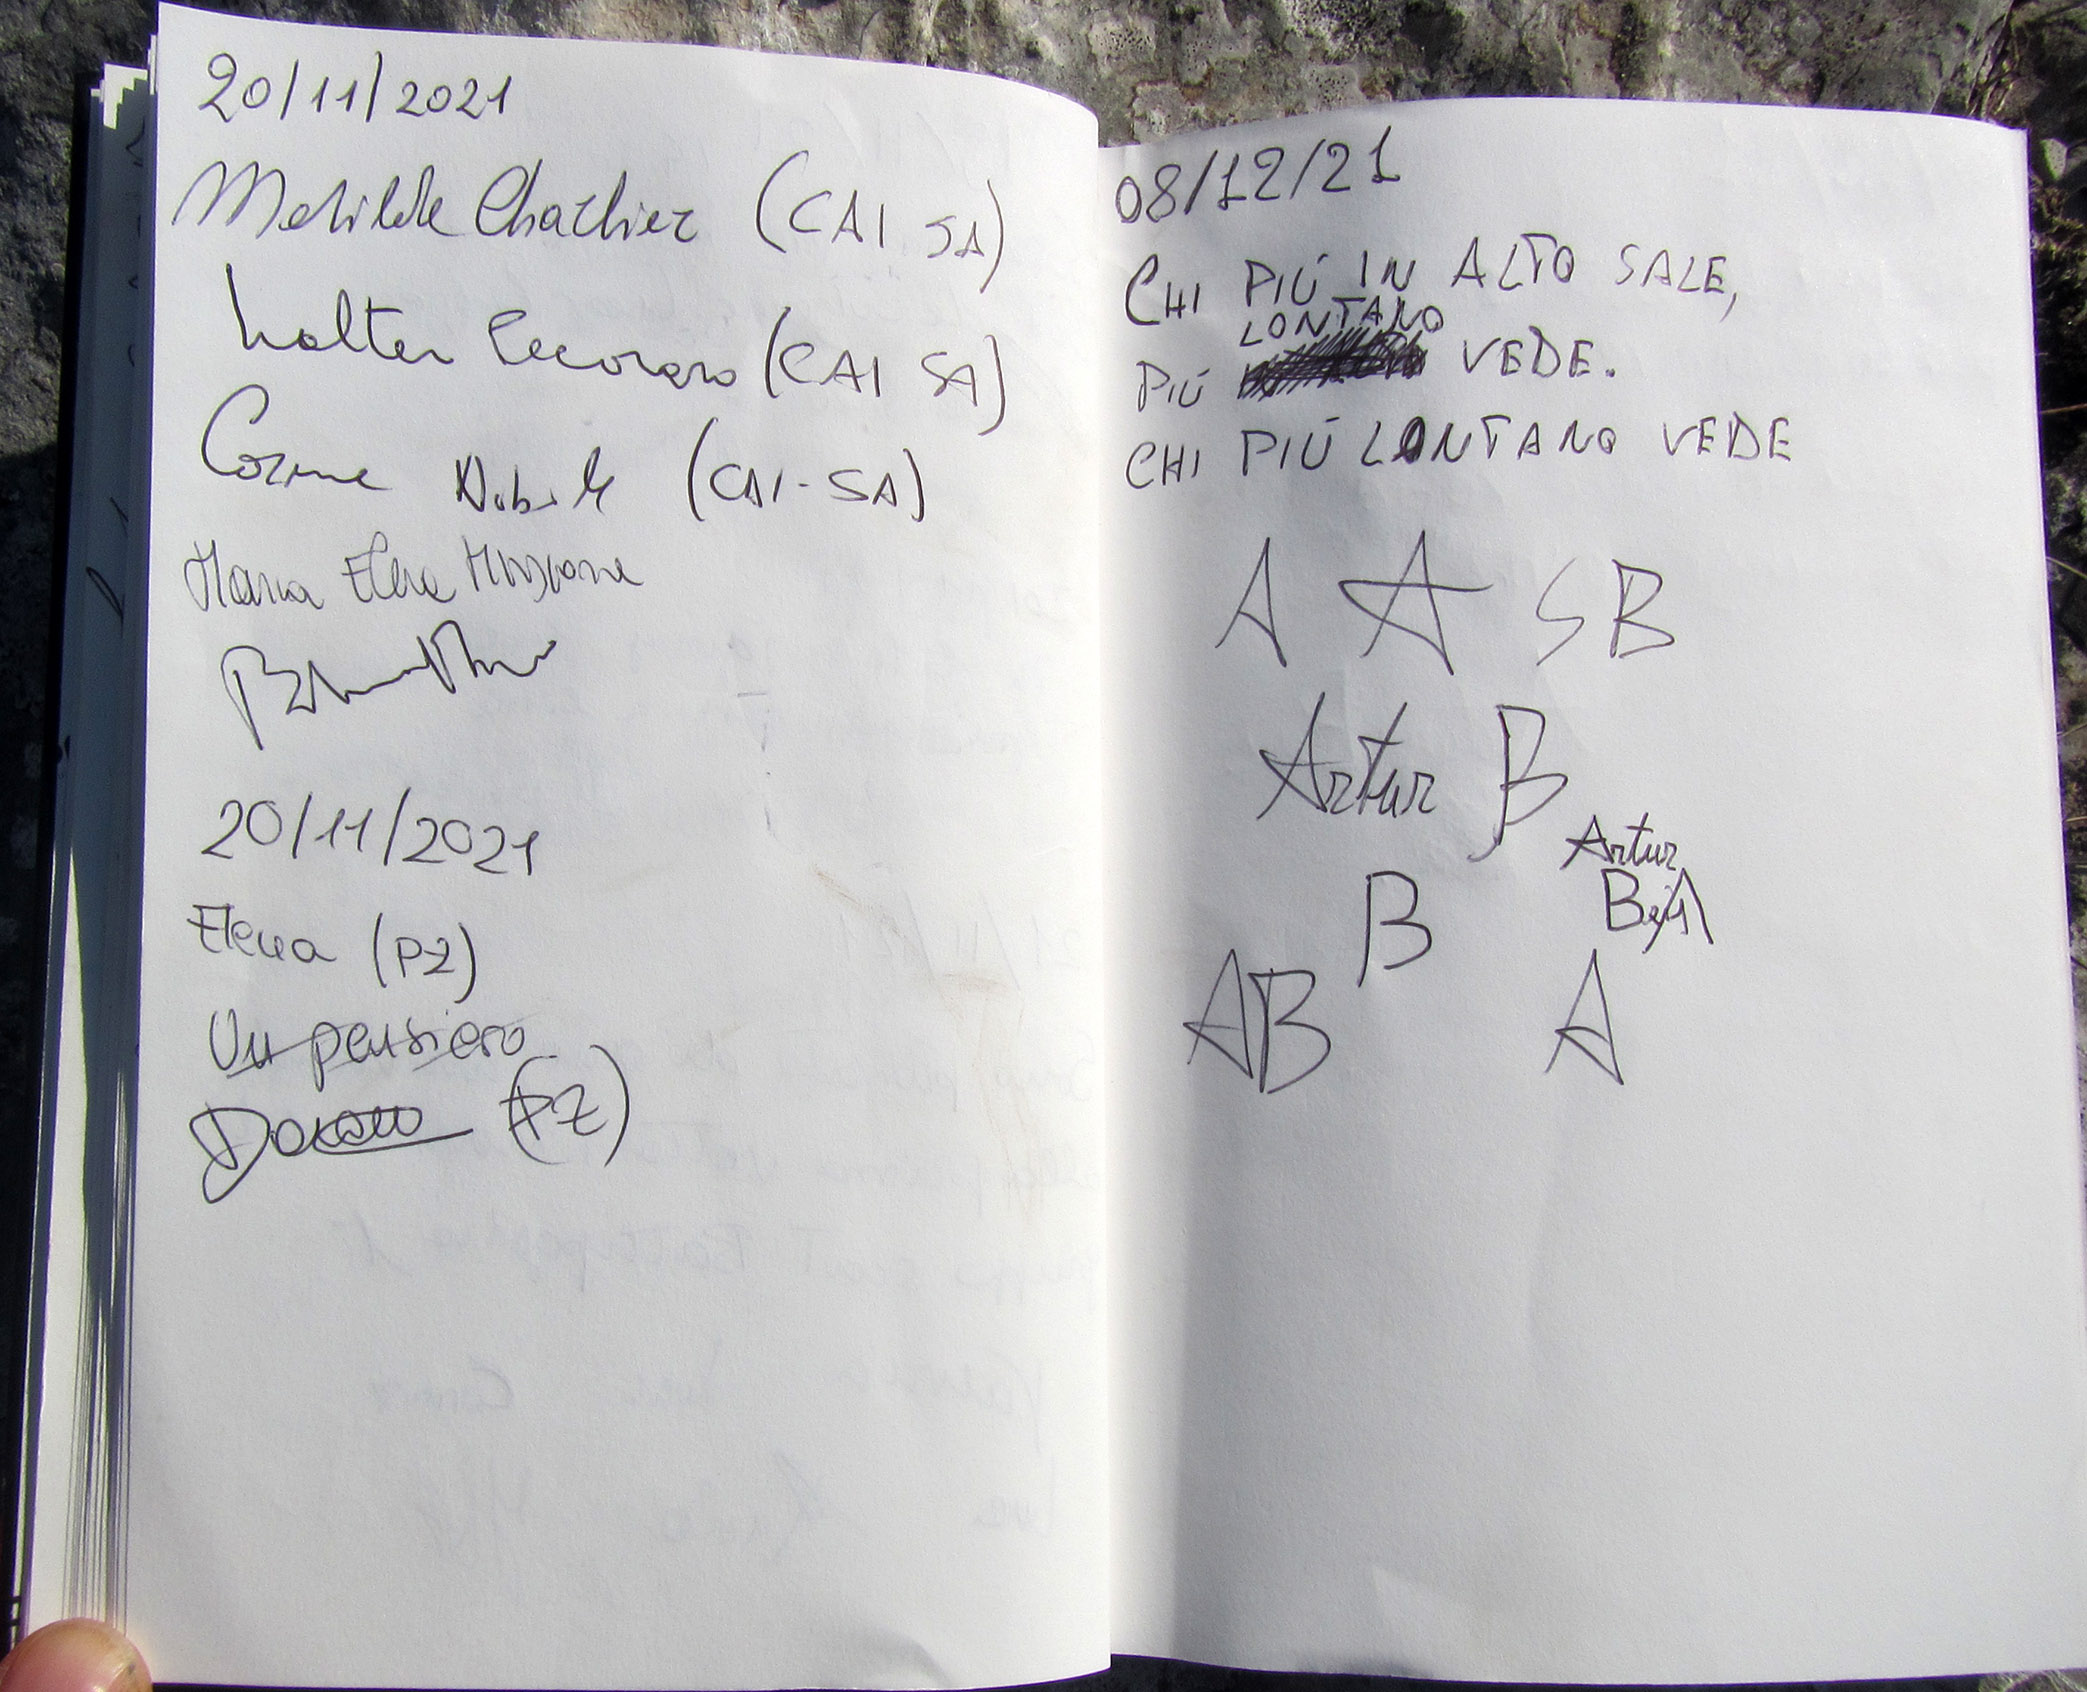 20/11/2021
Matilde Charlier (CAI SA)
Walter Pecoraro (CAI SA)
Nobile (CAI-SA)
Maria Elena
20/11/2021
Elena (PZ)
Un pensiero
Donato (PZ)
08/12/21
CHI PIÚ IN ALTO SALE,
LONTANO
PIÚ VEDE.
CHI PIÚ LONTANO VEDE
A A S B
Artur B
Artur
B
AB A